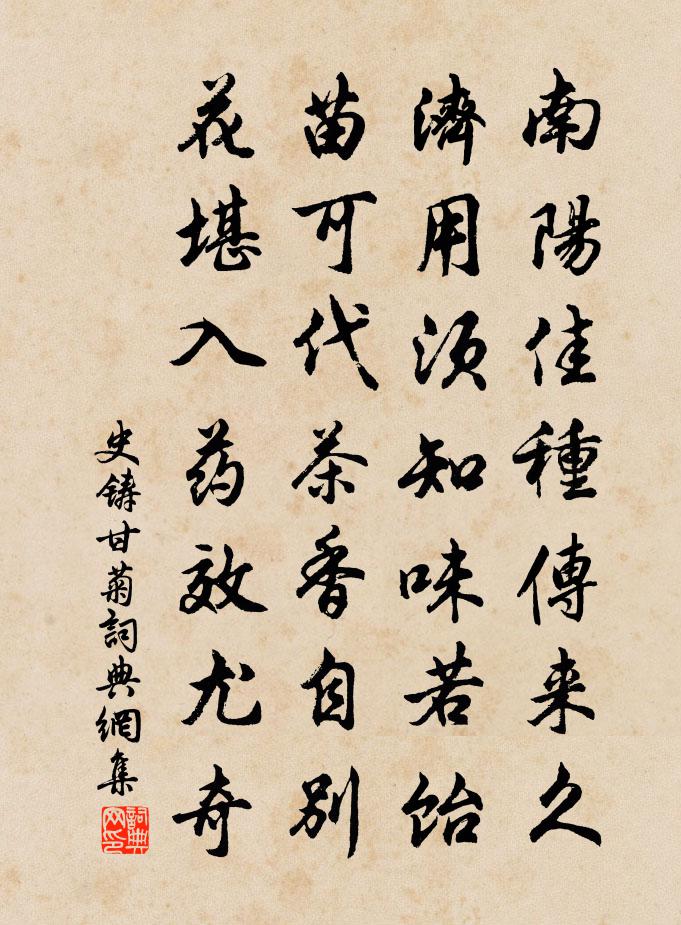 南陽佳種傳来久
濟用須知味若飴
苗可代茶香自别
花堪入药效尤奇
史鑄甘菊詞典網集
詞典網印